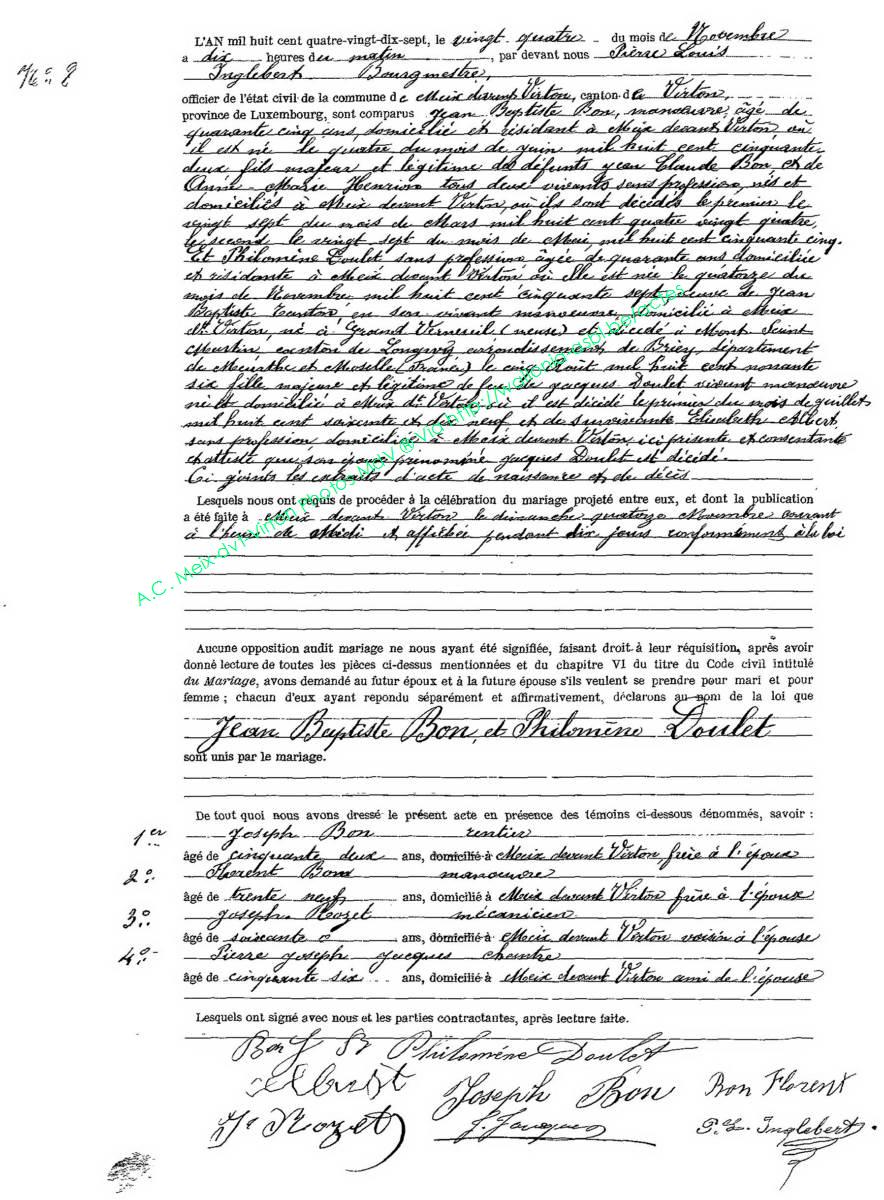 L'AN mil huit cent quatre-vingt-dix-sept, le vingt quatre du mois de Novembre
a dix heures du matin, par devant nous Pierre Louis
No 8
Inglebert Bourgmestre,
officier de l'état civil de la commune de Meix devant Virton, canton de Virton,
province de Luxembourg, sont comparus Jean Baptiste Bon, manœuvre, âgé de
quarante cinq ans, domicilié et résidant à Meix devant Virton, où
il est né le quatre du mois de juin mil huit cent cinquante
deux fils majeur et légitime des défunts Jean Claude Bon et de
Anne-Marie Henrion tous deux vivants sans profession, nés et
domiciliés à Meix devant Virton, où ils sont décédés le premier le
vingt sept du mois de Mars mil huit cent quatre vingt quatre,
le second le vingt sept du mois de Mai mil huit cent cinquante cinq.
Et Philomène Doulet sans profession âgée de quarante ans domiciliée
et résidante à Meix devant Virton où elle est née le quatorze du
mois de Novembre mil huit cent cinquante sept veuve de Jean
Baptiste en son vivant manœuvre, domicilié à Meix
dt Virton, né à Grand Verneuil (meuse) et décédé à Mont Saint
Martin canton de Longwy arrondissement de Briey, département
de Meurthe et Moselle (France) le cinq Août mil huit cent nonante
six fille majeure et légitime de feu Jacques Doulet vivant manœuvre
né et domicilié à Meix dt Virton où il est décédé le premier du mois de juillet
mil huit cent soixante et neuf et de survivante Elisabeth Albert,
sans profession domiciliée à Meix devant Virton, ici présente et consentante
et atteste que son époux prénommé Jacques Doulet est décédé.
Ci joints les extraits d'acte de naissance et de décès
Lesquels nous ont requis de procéder à la célébration du mariage projeté entre eux, et dont la publication
a été faite à Meix devant Virton le dimanche quatorze Novembre courant
à l'heure de Midi et affichée pendant dix jours conformément à la loi
A.C. Meix-dvt-Virton Photos MdV @ Via http://wallonia-asbl.be/actes
Aucune opposition audit mariage ne nous ayant été signifiée, faisant droit à leur réquisition, après avoir
donné lecture de toutes les pièces ci-dessus mentionnées et du chapitre VI du titre du Code civil intitulé
du Mariage, avons demandé au futur époux et à la future épouse s'ils veulent se prendre pour mari et pour
femme ; chacun d'eux ayant repondu séparément et affirmativement, déclarons au nom de la loi que
Jean Baptiste Bon, et Philomène Doulet
sont unis par le mariage.
De tout quoi nous avons dressé le présent acte en présence des témoins ci-dessous dénommés, savoir :
1er Joseph Bon rentier
âgé de cinquante deux ans, domicilié à Meix devant Virton, frère à l'époux
2o Florent Bon manœuvre
âgé de trente neuf ans, domicilié à Meix devant Virton frère à l'époux
3o Joseph Rozet mécanicien
âgé de soixante ans, domicilié à Meix devant Virton voisin à l'épouse
4o Pierre Joseph Jacques chantre
âgé de cinquante six ans, domicilié à Meix devant Virton ami de l'épouse
Lesquels ont signé avec nous et les parties contractantes, après lecture faite.
Bon J B Philomène Doulet
Albert Joseph Bon Bon Florent
Rozet J. Jacques P. L. Inglebert.